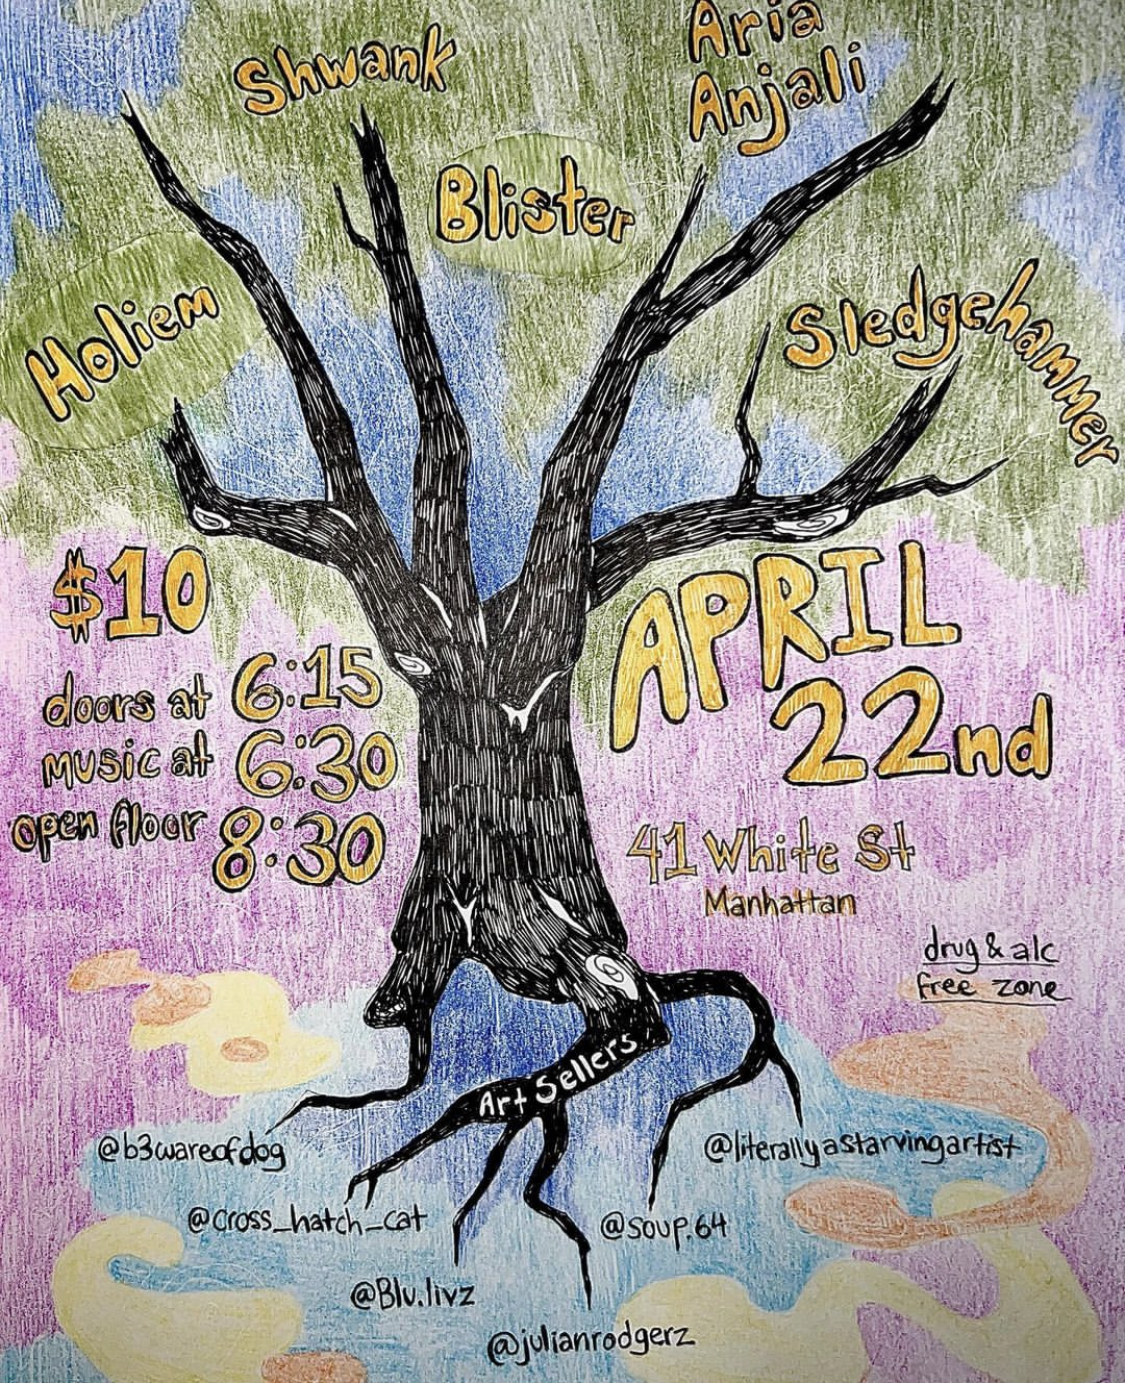 Shwank
Aria
Anjali
Blister
Holiem
Sledgehammer
$10
doors at 6:15
music at 6:30
open floor 8:30
APRIL
22nd
41 White St
Manhattan
drug & alc
free zone
Art Sellers
@b3wareofdog
@literallyastarvingartist
@cross_hatch_cat
@soup.64
@Blu.livz
@julianrodgerz